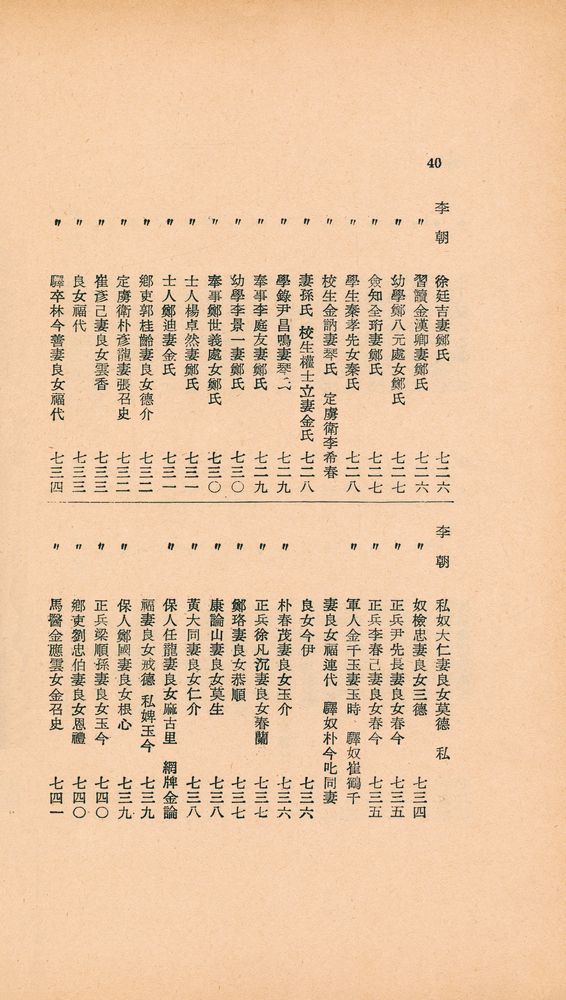 40
李朝 徐廷吉妻鄭氏 七二六
〃 習讀金漢卿妻鄭氏 七二六
〃 幼學鄭八元處女鄭氏 七二七
〃 僉知全珩妻鄭氏 七二七
〃 學生秦孝先女秦氏 七二八
〃 校生金訥妻琴氏 定虜衛李希春
妻孫氏 校生權士立妻金氏 七二八
〃 學錄尹昌鳴妻琴氏 七二九
〃 奉事李庭友妻鄭氏 七二九
〃 幼學李景一妻鄭氏 七三〇
〃 奉事鄭世義處女鄭氏 七三〇
〃 士人楊卓然妻鄭氏 七三一
〃 士人鄭迪妻金氏 七三一
〃 鄉吏郭桂齡妻良女德介 七三二
〃 定虜衛朴彥龍妻張召史 七三二
〃 崔彥己妻良女雲香 七三三
〃 良女福代 七三三
〃 驛卒林今善妻良女福代 七三四
李朝 私奴大仁妻良女莫德 私
奴檢忠妻良女三德 七三四
〃 正兵尹先長妻良女春今 七三五
〃 正兵李春己妻良女春今 七三五
〃 軍人金千玉妻玉時 驛奴崔鶴千
妻良女福連代 驛奴朴今叱同妻
良女今伊 七三六
〃 朴春茂妻良女玉介 七三六
〃 正兵徐凡沉妻良女春蘭 七三七
〃 鄭珞妻良女恭順 七三七
〃 康論山妻良女莫生 七三八
〃 黃大同妻良女仁介 七三八
〃 保人任龍妻良女麻古里 網牌金論
福妻良女戒德 私婢玉今 七三九
〃 保人鄭國妻良女根心 七三九
〃 正兵梁順孫妻良女玉今 七四〇
〃 鄉吏劉忠伯妻良女恩禮 七四〇
〃 馬醫金應雲女金召史 七四一